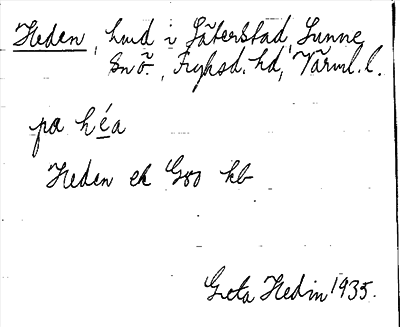 Heden, hmd i Säterstad, Sunne
sn ö., Fryksd. hd, Värml. l.
pa héa
Heden ek Goo kb
Greta Hedin 1935.